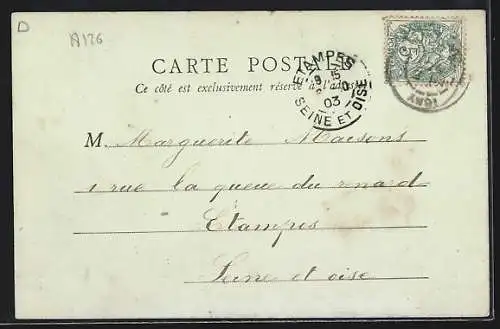 D
A126
CARTE POSTALE
Ce côté est exclusivement réservé à l'adresse
ETAMPES
8 15
03
SEINE ET OISE
5
M. Marguerite Maisons
1 rue la queue du renard
Etampes
Seine et oise